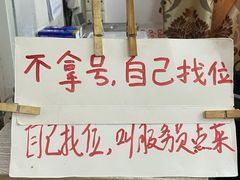 不拿号,自己找位
自己找位,叫服务员点菜